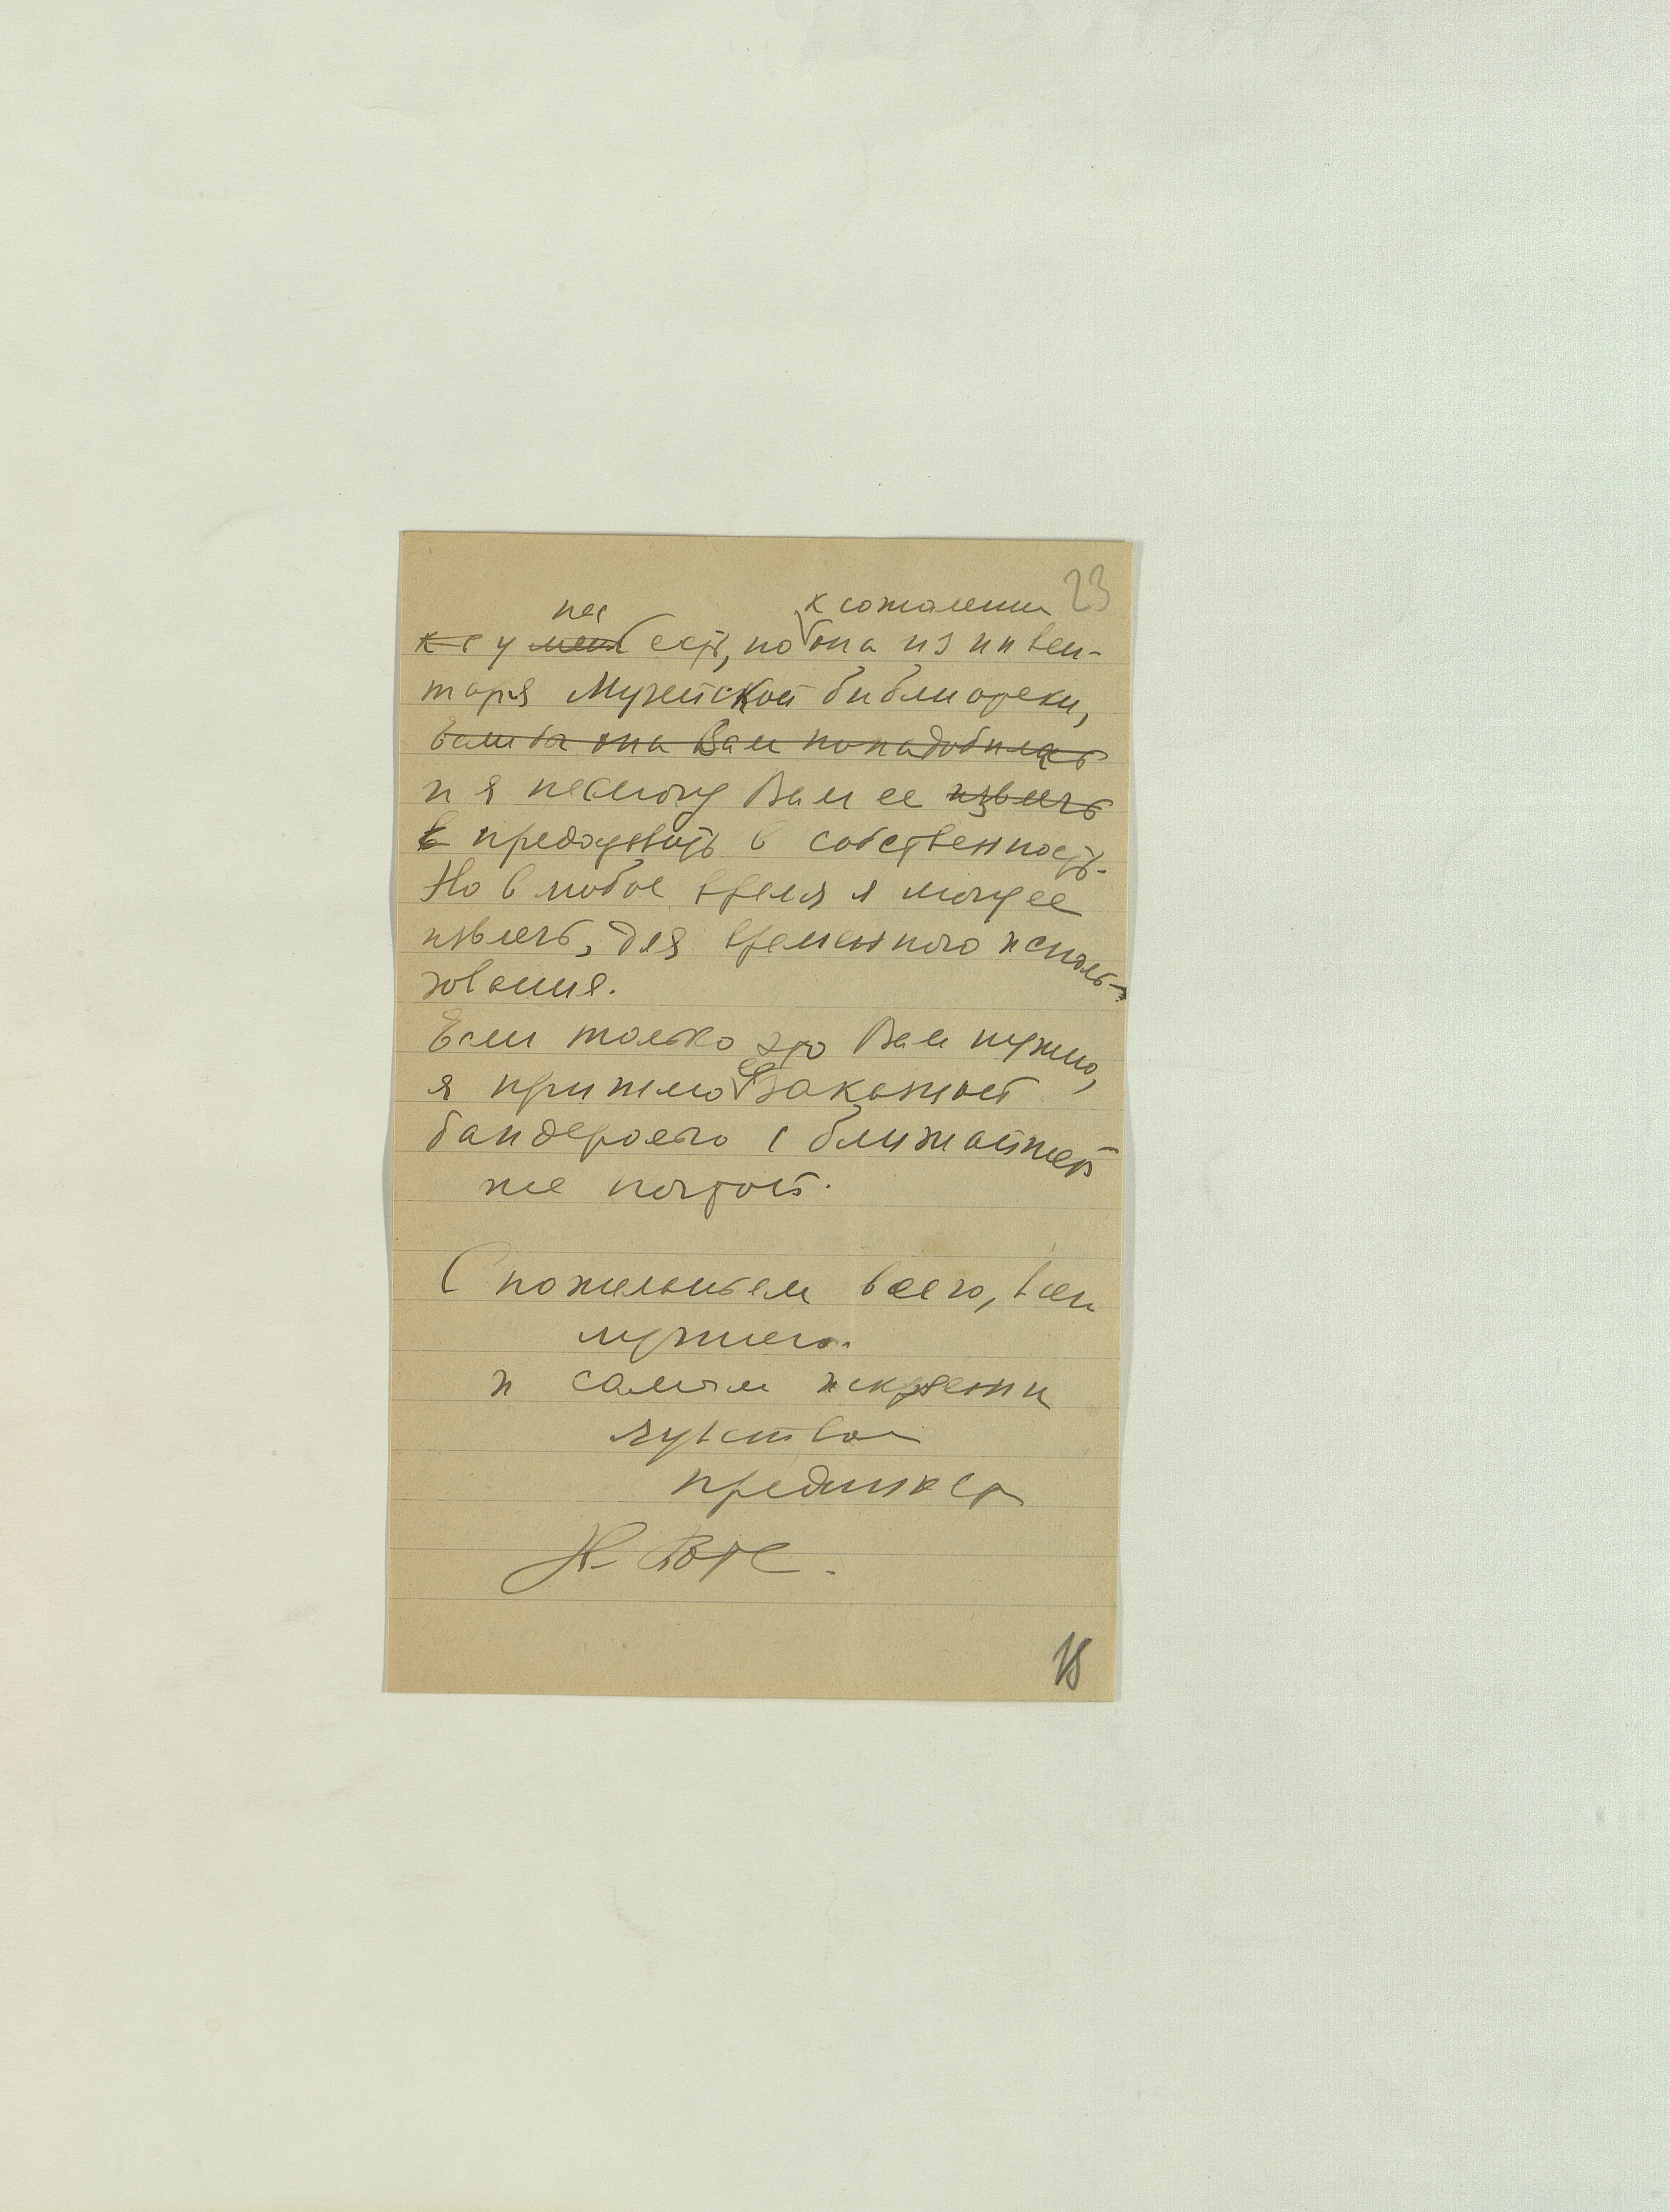 23
нас к сожалению
у есть, но она из инвен-
таря Музейской библиотеки,
если бы она Вам понадобилась
и я не смогу Вам ее извлечь
в предоставить в собственность.
Но в любое время я могу ее
извлечь, для временного исполь-
зования.
Если только это Вам нужно,
я пришлю ее заказной
бандеролью с ближайшей
же почтой.
С пожеланием всего, всего
лучшего
и самым искренни
чувством
преданности
Н.
18